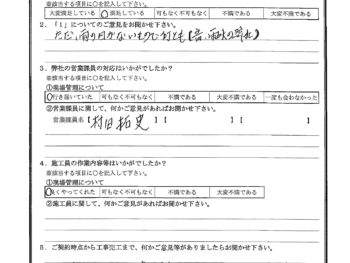 ※該当する項目に○を記入して下さい。
大変満足している ○満足している 可もなく不可もなく 不満である 大変不満である
2．「1」についてのご意見をお聞かせ下さい。
3．弊社の営業課員の対応はいかがでしたか？
※該当する項目に○を記入して下さい。
①現場管理について
○行き届いていた 可もなく不可もなく 不満である 大変不満である 一度も会わなかった
②営業課員に関して、何かご意見があればお聞かせ下さい。
営業課員名【村田拓史】【 】【 】
4．施工員の作業内容等はいかがでしたか？
※該当する項目に○を記入して下さい。
①現場管理について
良くやってくれた 可もなく不可もなく 不満である 大変不満である
②施工員に関して、何かご意見があればお聞かせ下さい。
5．ご契約時点から工事完工まで、何かご意見等がありましたらお聞かせ下さい。